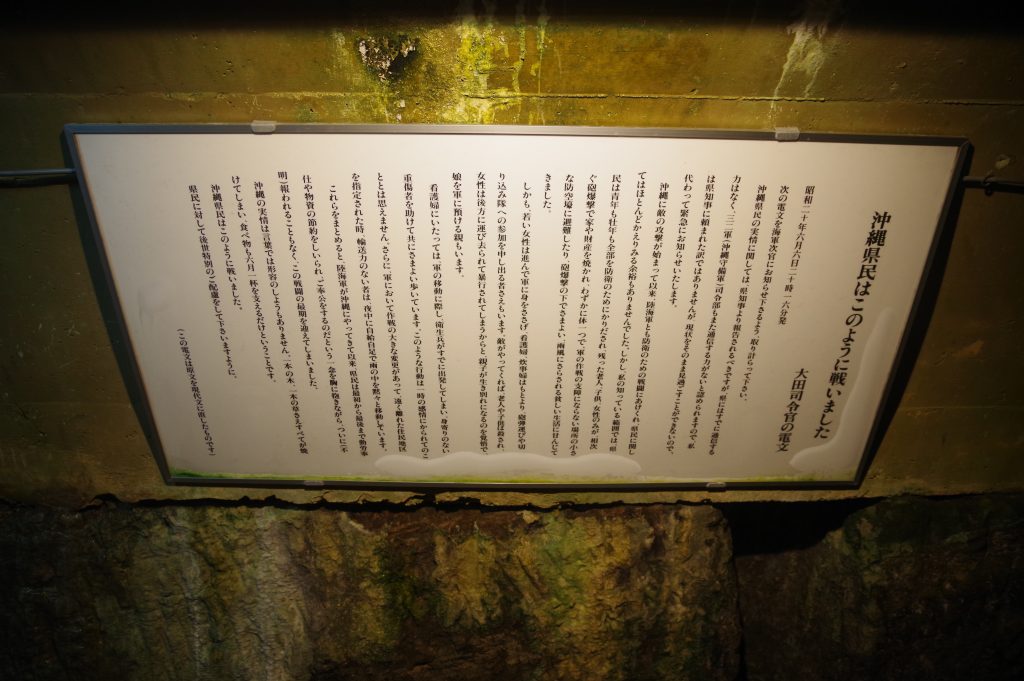 沖縄県民はこのように戦いました
大田司令官の電文
昭和二十年六月六日二十時一六分発
次の電文を海軍次官にお知らせ下さるよう取り計らって下さい。
沖縄県民の実情に関しては、県知事より報告されるべきですが、県にはすでに通信する
力はなく、三二軍(沖縄守備軍)司令部もまた通信する力がないと認められますので、私
は県知事に頼まれた訳ではありませんが、現状をそのまま見過ごすことができないので、
代わって緊急にお知らせいたします。
沖縄に敵の攻撃が始まって以来、陸海軍とも防衛のための戦闘にあけくれ、県民に関し
てはほとんどかえりみる余裕もありませんでした。しかし、私の知っている範囲では、県
民は青年も壮年も全部を防衛のためにかりだされ、残った老人、子供、女性のみが、相次
ぐ砲爆撃で家や財産を焼かれ、わずかに体一つで、軍の作戦の支障にならない場所の小さ
な防空壕に避難したり、砲爆撃の下でさまよい、雨風にさらされる貧しい生活に甘んじて
きました。
しかも、若い女性は進んで軍に身をささげ、看護婦、炊事婦はもとより、砲弾運びや切
り込み隊への参加を申し出る者さえもいます。敵がやってくれば、老人や子供は殺され、
女性は後方に運び去られて暴行されてしまうからと、親子が生き別れになるのを覚悟で
娘を軍に預ける親もいます。
看護婦にいたっては、軍の移動に際し、衛生兵がすでに出発してしまい、身寄りのない
重傷者を助けて共にさまよい歩いています。このような行動は一時の感情にかられてのこ
ととは思えません。さらに、軍において作戦の大きな変更があって、遠く離れた住民地区
を指定された時、輸送力のない者は、夜中に自給自足で雨の中を黙々と移動しています。
これらをまとめると、陸海軍が沖縄にやってきて以来、県民は最初から最後まで勤労奉
仕や物資の節約をしいられ、ご奉公をするのだという一念を胸に抱きながら、ついに(不
明)報われることもなく、この戦闘の最期を迎えてしまいました。
沖縄の実情は言葉では形容のしようもありません。一本の木、一本の草さえすべてが焼
けてしまい、食べ物も六月一杯を支えるだけということです。
沖縄県民はこのように戦いました。
県民に対して後世特別のご配慮をして下さいますように。
(この電文は原文を現代文に直したものです)